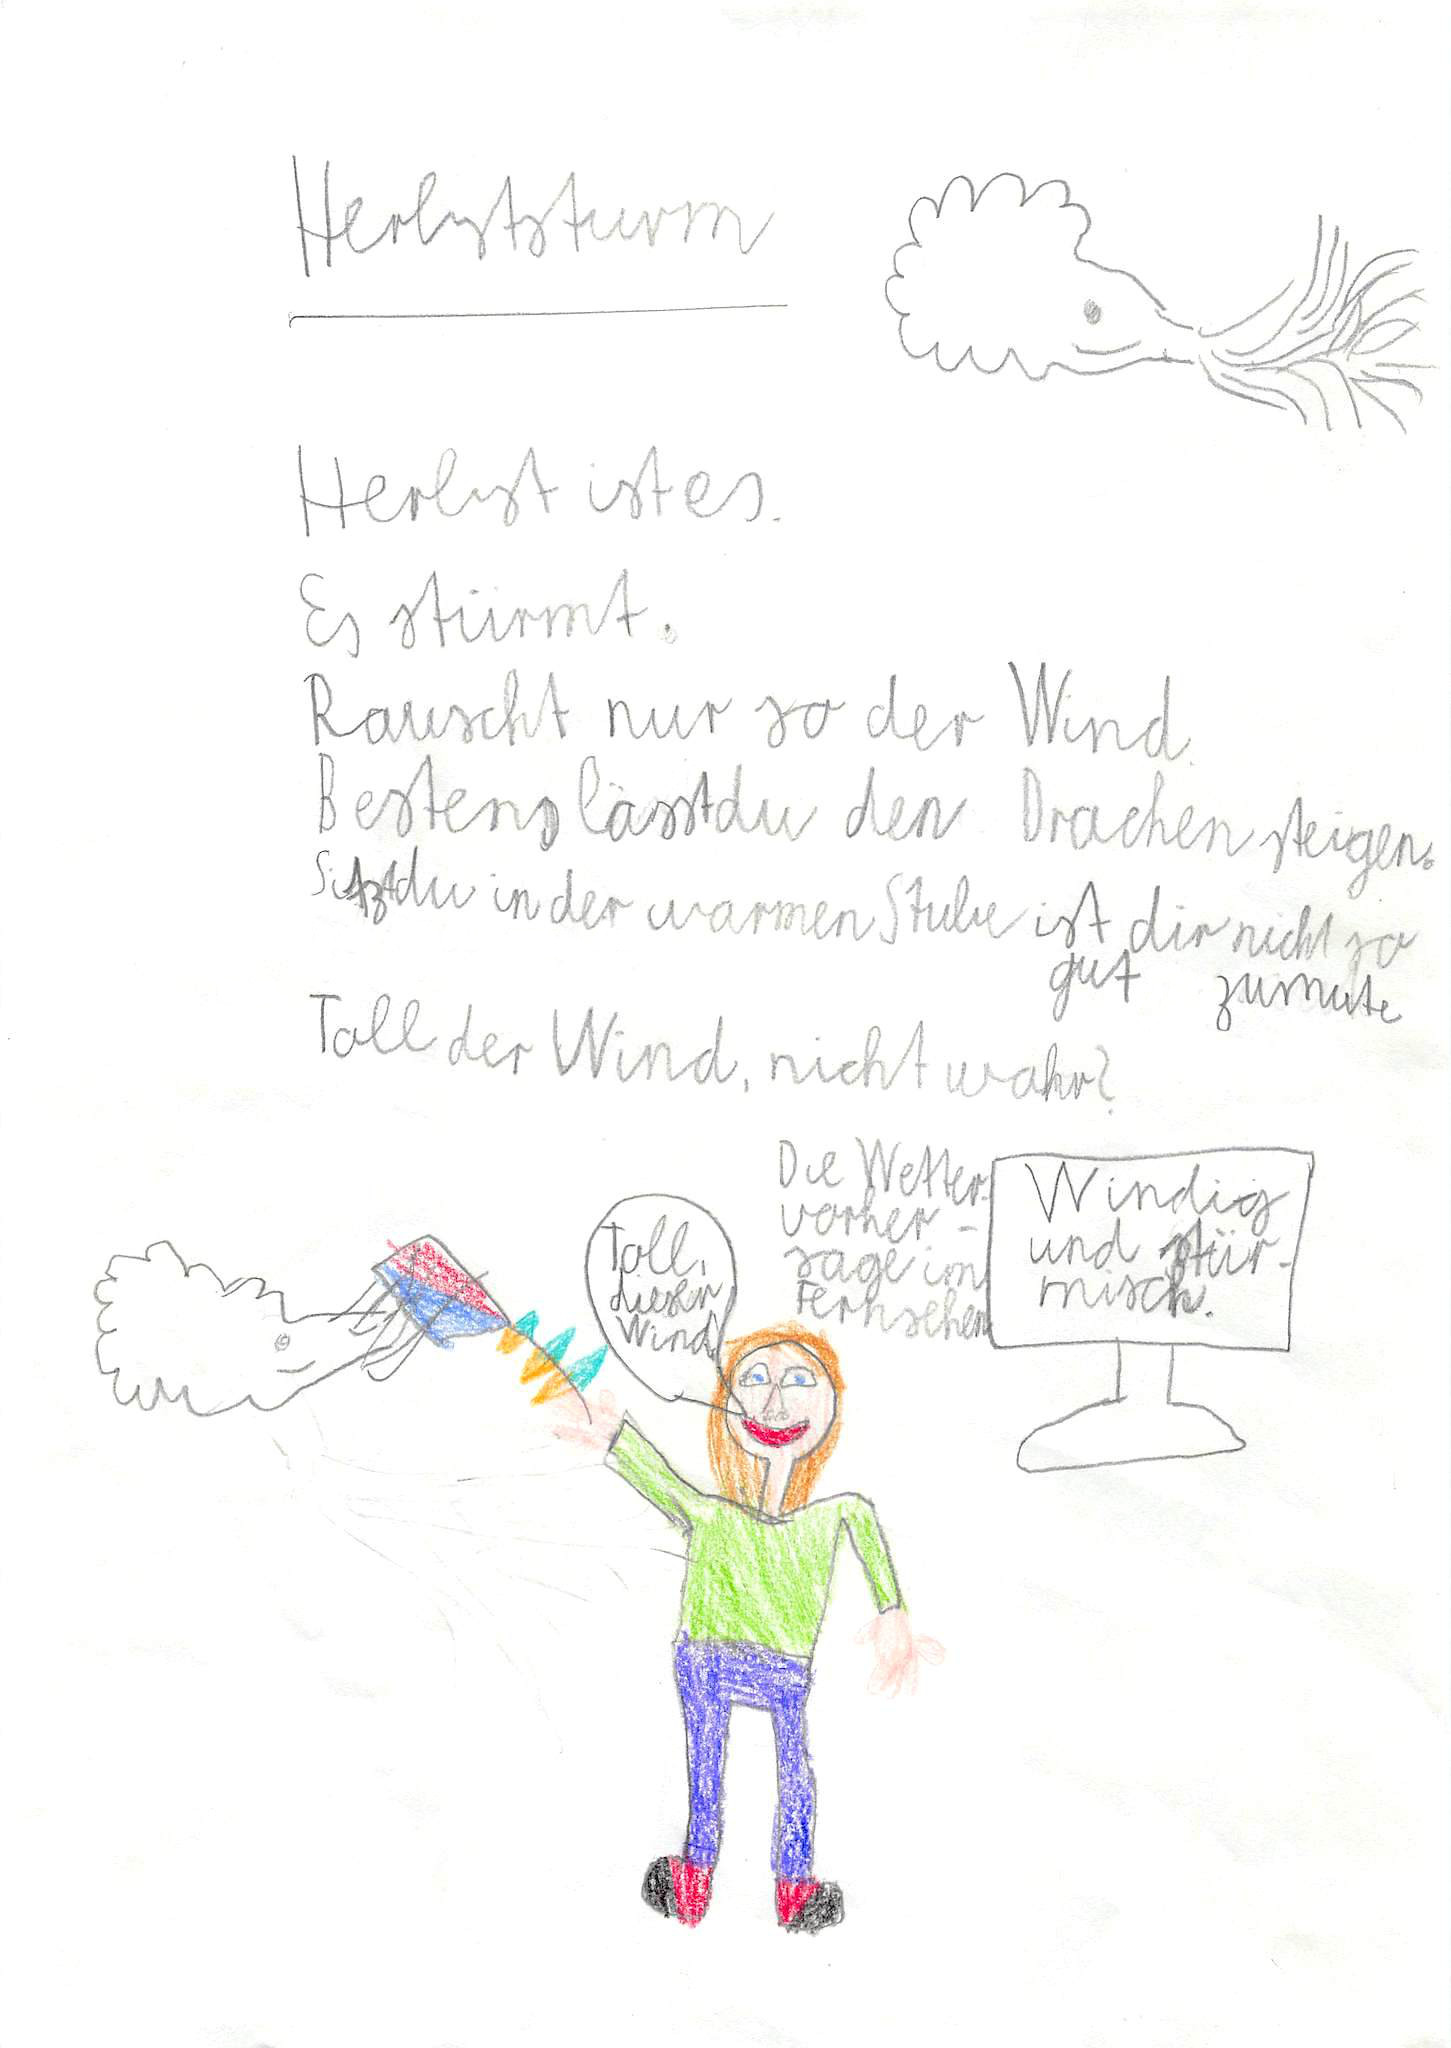 Herbststurm
Herbst ist es.
Es stürmt.
Rauscht nur so der Wind.
Bestens lässt du den Drachen steigen.
Sitzt du in der warmen Stube ist dir nicht so
gut zumute
Toll der Wind, nicht wahr?
Die Wetter-
vorher-
sage im
Fernsehen
Windig
und stür-
misch.
Toll,
dieser
Wind!